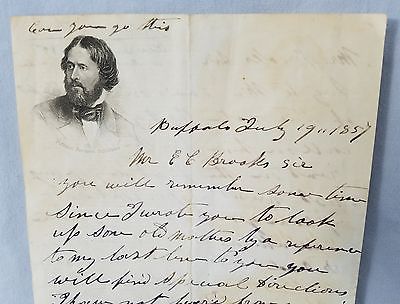 can you go this
Buffalo July 19.. 1857
Mr E C Brooks Sir
you will remember some time
since I wrote you to look
up some old mothes by a reference
to my last line to you you
will find Special Directions
I have not